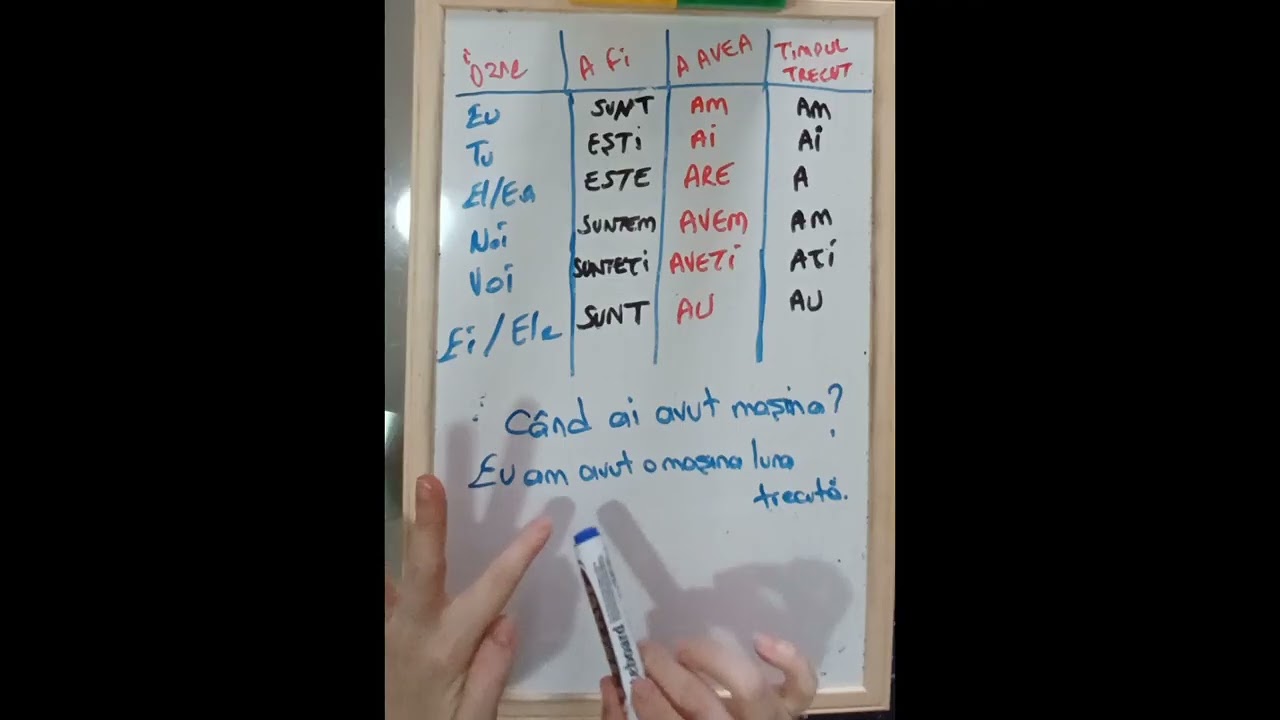 Özne A Fi A AVEA TIMPUL TRECUT
Eu SUNT AM AM
Tu EŞTi Ai Ai
El/Ea ESTE ARE A
Noi SUNTEM AVEM AM
Voi SUNTETi AVETi ATi
Ei/Ele SUNT AU AU
Când ai avut maşina?
Eu am avut o maşina luna
trecută.